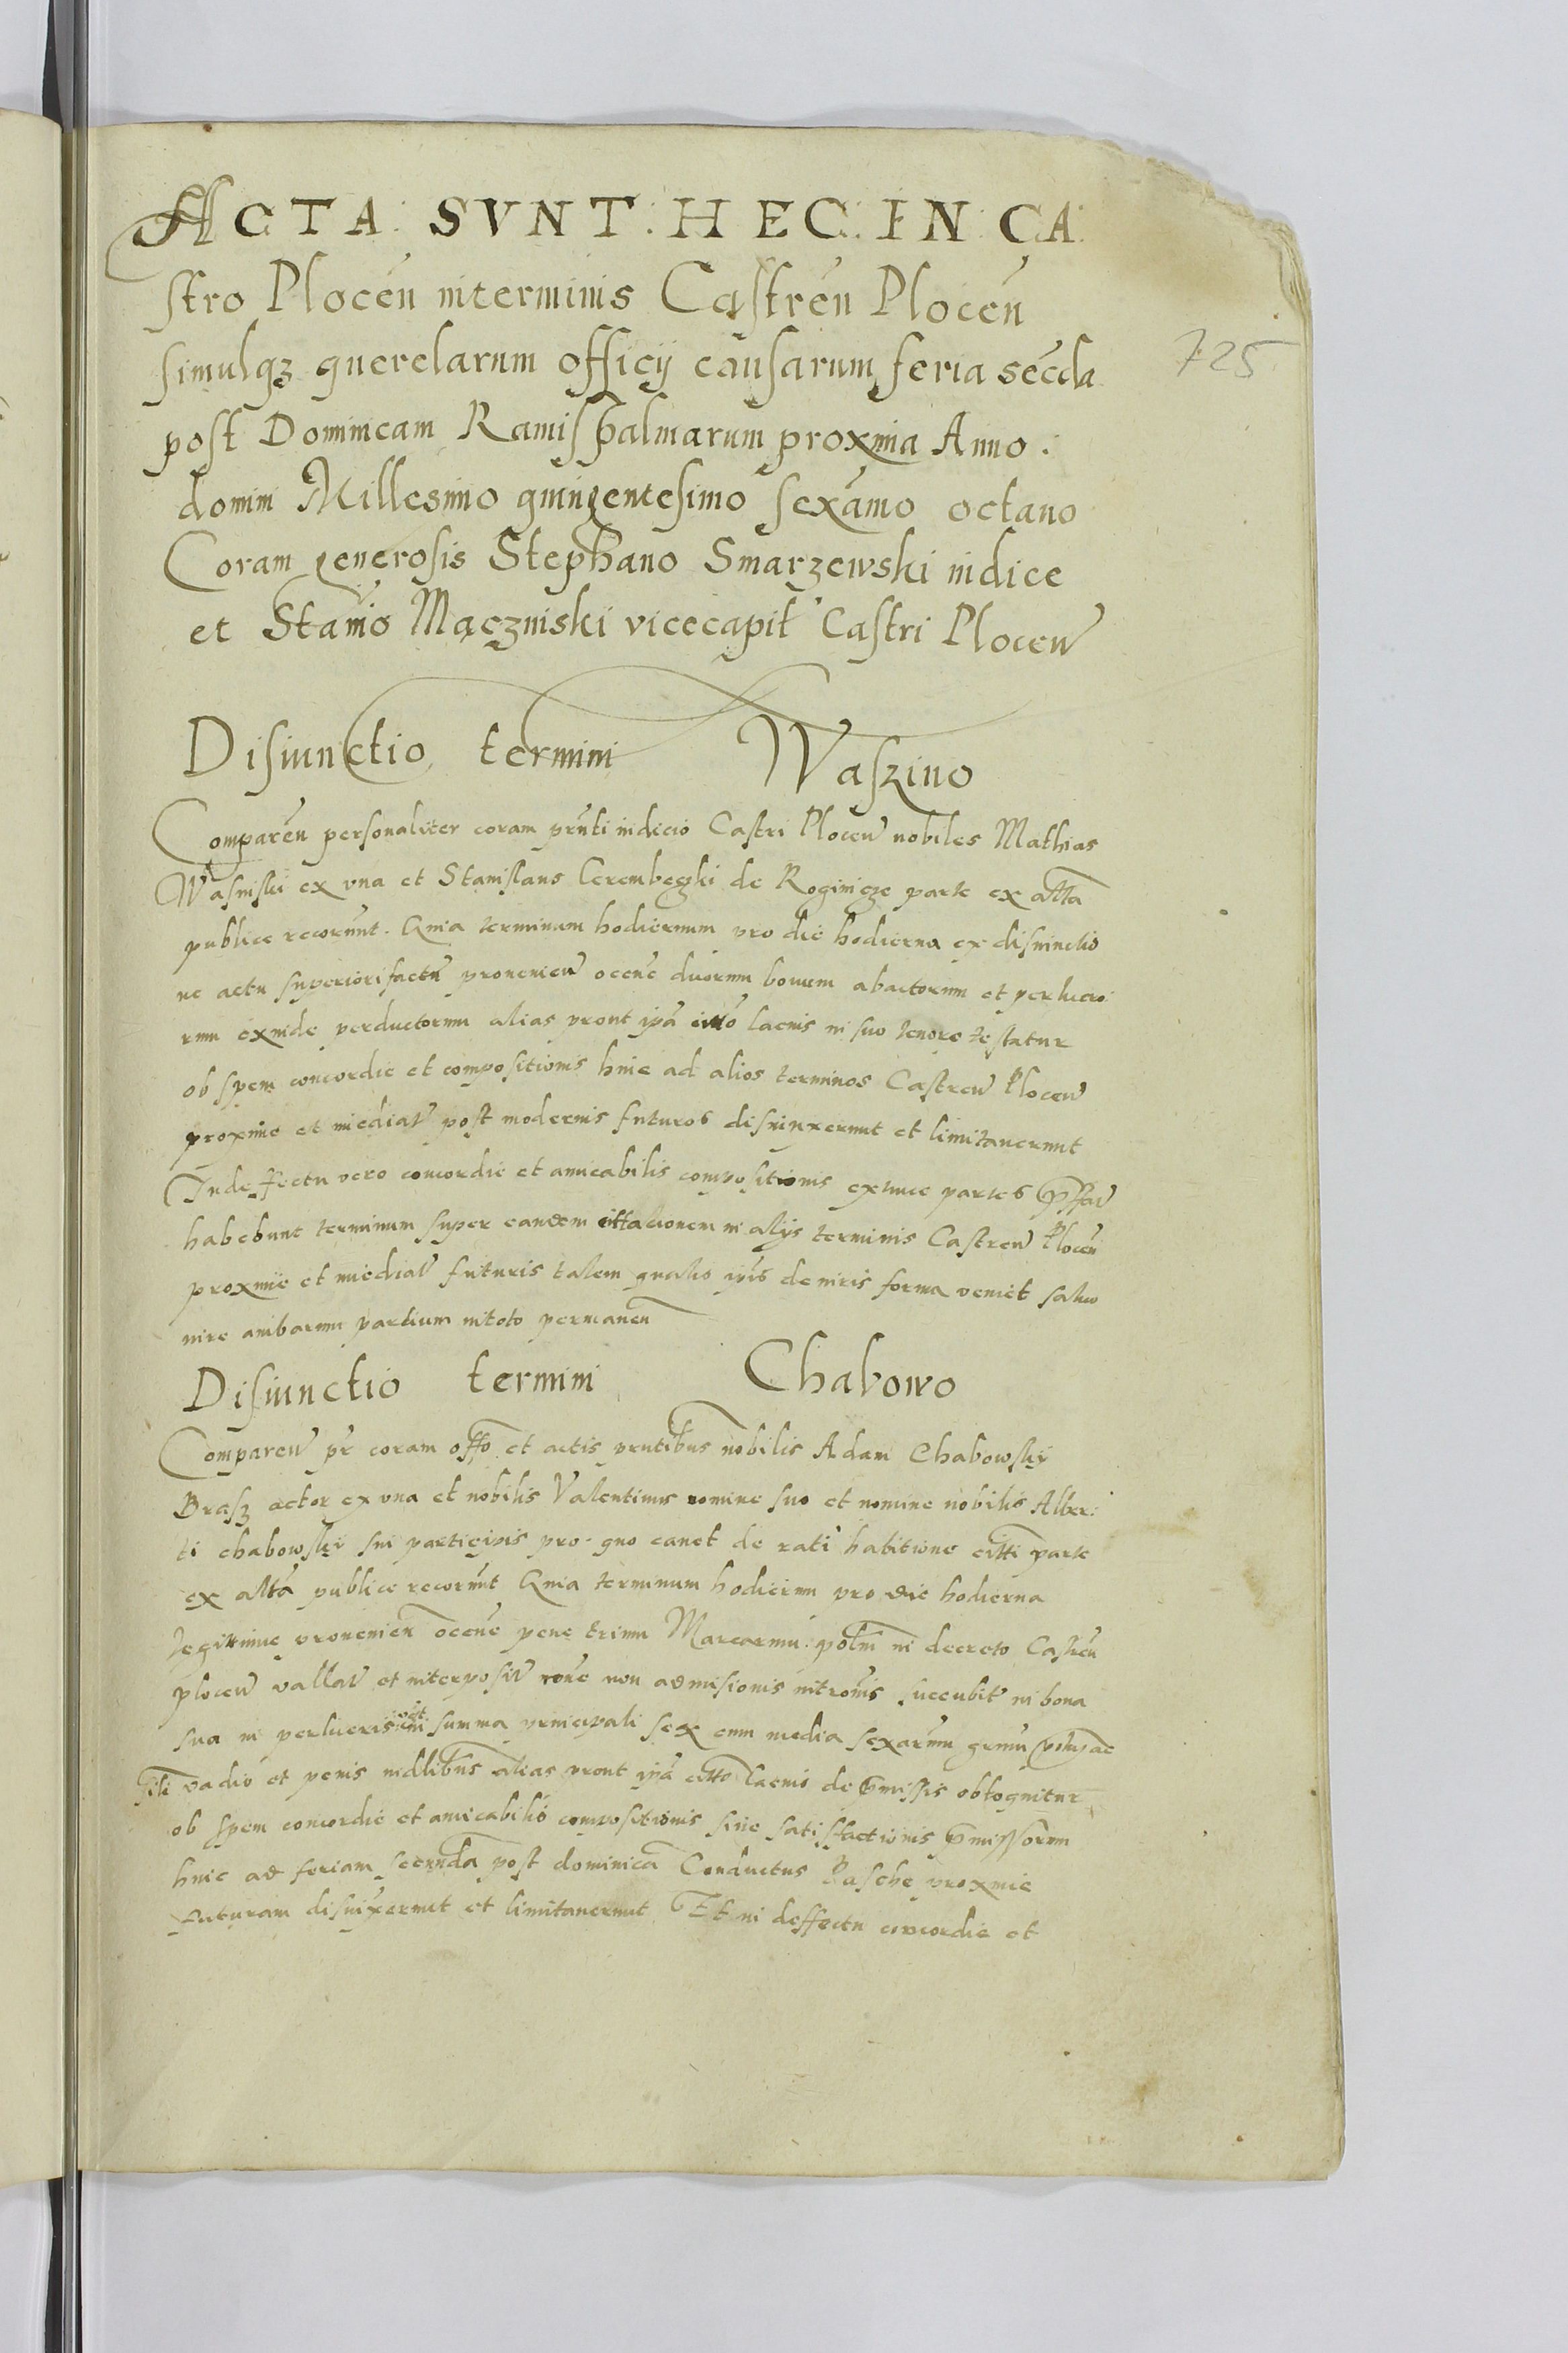 ACTA: SVNT: HEC: IN: CA:
stro Plocen̄ in terminis Castren̄ Plocen̄
simulqz querelarum officÿ causarum feria sec̄da
post Dominicam Ramispalmarum proxima Anno.
domini Millesimo quingentesimo sexāmo octauo
Coram generosis Stephano Smarzewski iudice
et Stan̄io Mączinski vicecapit̄ Castri Plocen̄
725
Disiunctio termini Waszino
Comparen̄ personaliter coram pn̄ti iudicio Castri Plocen̄ nobiles Mathias
Wasinski ex vna et Stanislaus Cerembeczki de Roginicze parte ex alt̄a
publice recorūnt. Quia terminum hodiernum pro die hodierna ex disiunctio
ne actu superiori factū prouenien̄ oc̄ne duorum bouum abactorum et per lucro
rum exinde perductorum alias prout ip̄a citt̄o lacius in suo tenore testatur
ob spem concordie et compositionis hinc ad alios terminos Castren̄ Plocen̄
proxime et inmediat̄ post modernis futuros disiunxerunt et limitauerunt
In defectu vero concordie et amicabilis compositionis extunc partes p̄ffat̄
habebunt terminum super eandem cittationem in alÿs terminis Castren̄ Plocen̄
proxime et inmediat̄ futuris talem qualis ip̄is de iuris forma veniet saluo
iure ambarum partium in toto permanen̄
Disiunctio termini Chabowo
Comparen̄ pr̄ coram off̄o et actis pn̄tibus nobilis Adam Chabowskÿ
Brasz actor ex vna et nobilis Valentinus nomine suo et nomine nobilis Alber:
ti chabowskÿ sui participis pro quo cauet de rati habitione citt̄i parte
ex alt̄a publice recorūnt Quia terminum hodiernu pro die hodierna
legittime prouenien̄ oc̄ne pene trium Marcarum pol̄m in decreto Castren̄
plocen̄ vallat̄ et interposit̄ rōne non admisionis intrōnis succubit̄ in bona
sua in perlucris summa principali sex cum media sexarum grum̄
vadio et penis alias prout ip̄a citt̄o lacius de p̄missis obloquitur
ob spem concordie et amicabilis compositionis siue satisfactionis p̄missorum
hinc ad feriam secundā post dominicā Conductus Pasche proxime
futuram disiūxerunt et limitauerunt Et in deffectu concordie et